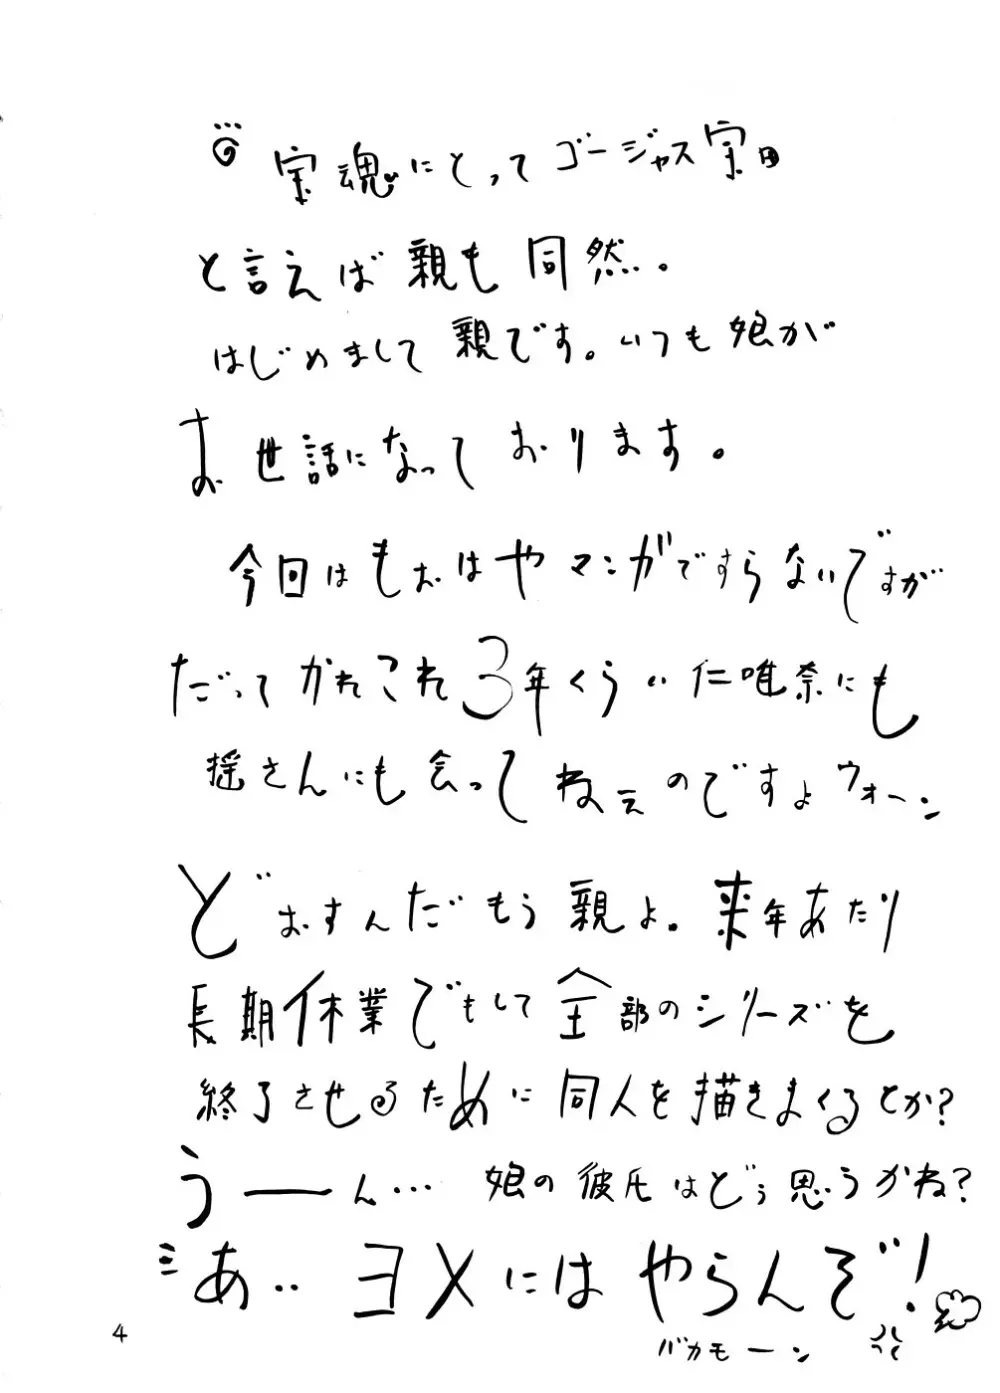 宝魂にとってゴージャス宝田
と言えば親も同然。
はじめまして親です。いつも娘が
お世話になっております。
今回はもおはやマンガですらないですが
だってかれこれ3年くらい仁唯奈にも
揺さんにも会ってねェのですよウォーン
どおすんだもう親よ。来年あたり
長期休業でもして全部のシリーズを
終了させるために同人を描きまくるとか?
うーーん… 娘の彼氏はどぅ思うかね?
あ‥ヨメにはやらんぞ!
バカモーン
4